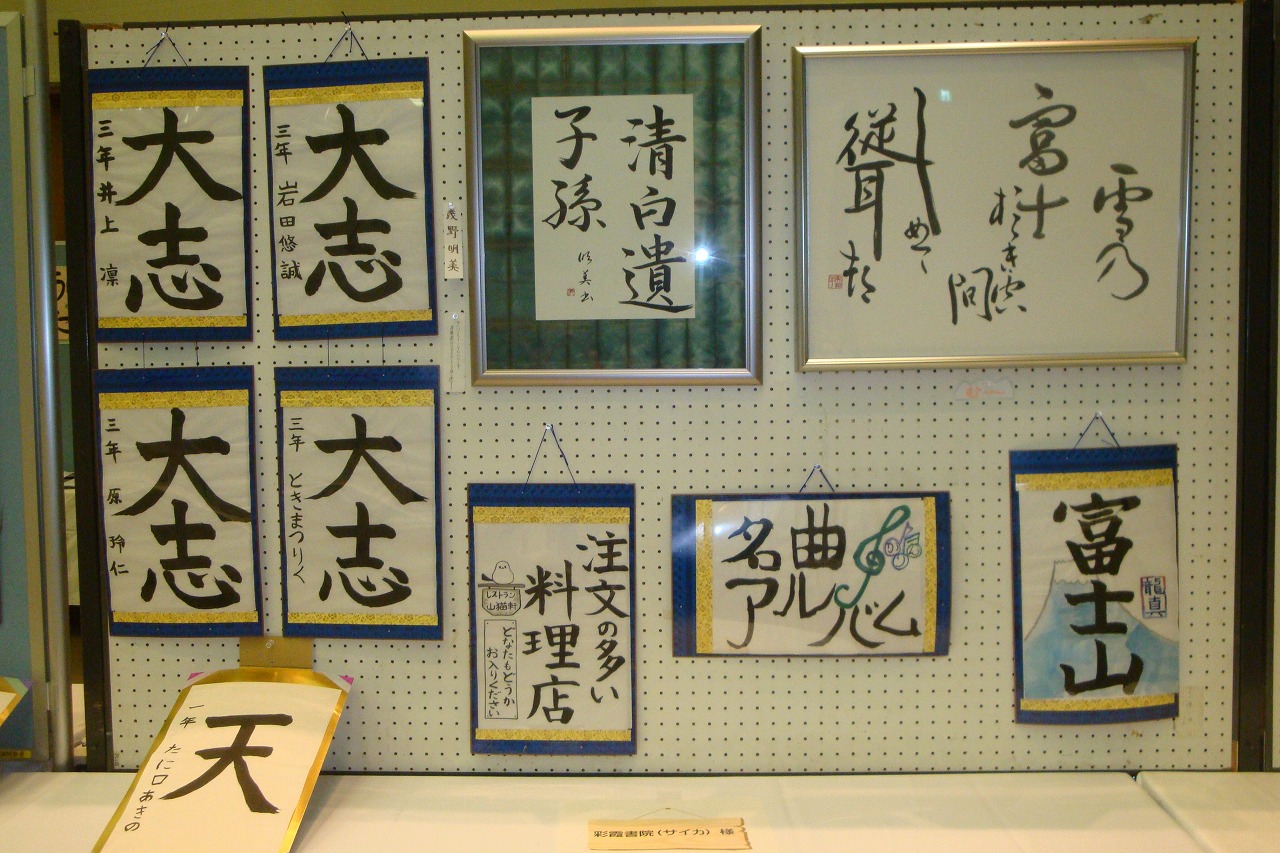 大志
三年 井上 凛
大志
三年 岩田悠誠
茂野明美
清白遺
子孫
明美書
雪乃
富士
間
大志
三年 原 玲仁
大志
三年 ときまつりく
注文の多い
料理店
レストラン
山猫軒
どなたもどうか
お入りください
名曲
アルバム
富士山
龍真
天
一年 たに口あきの
彩霞書院(サイカ) 様